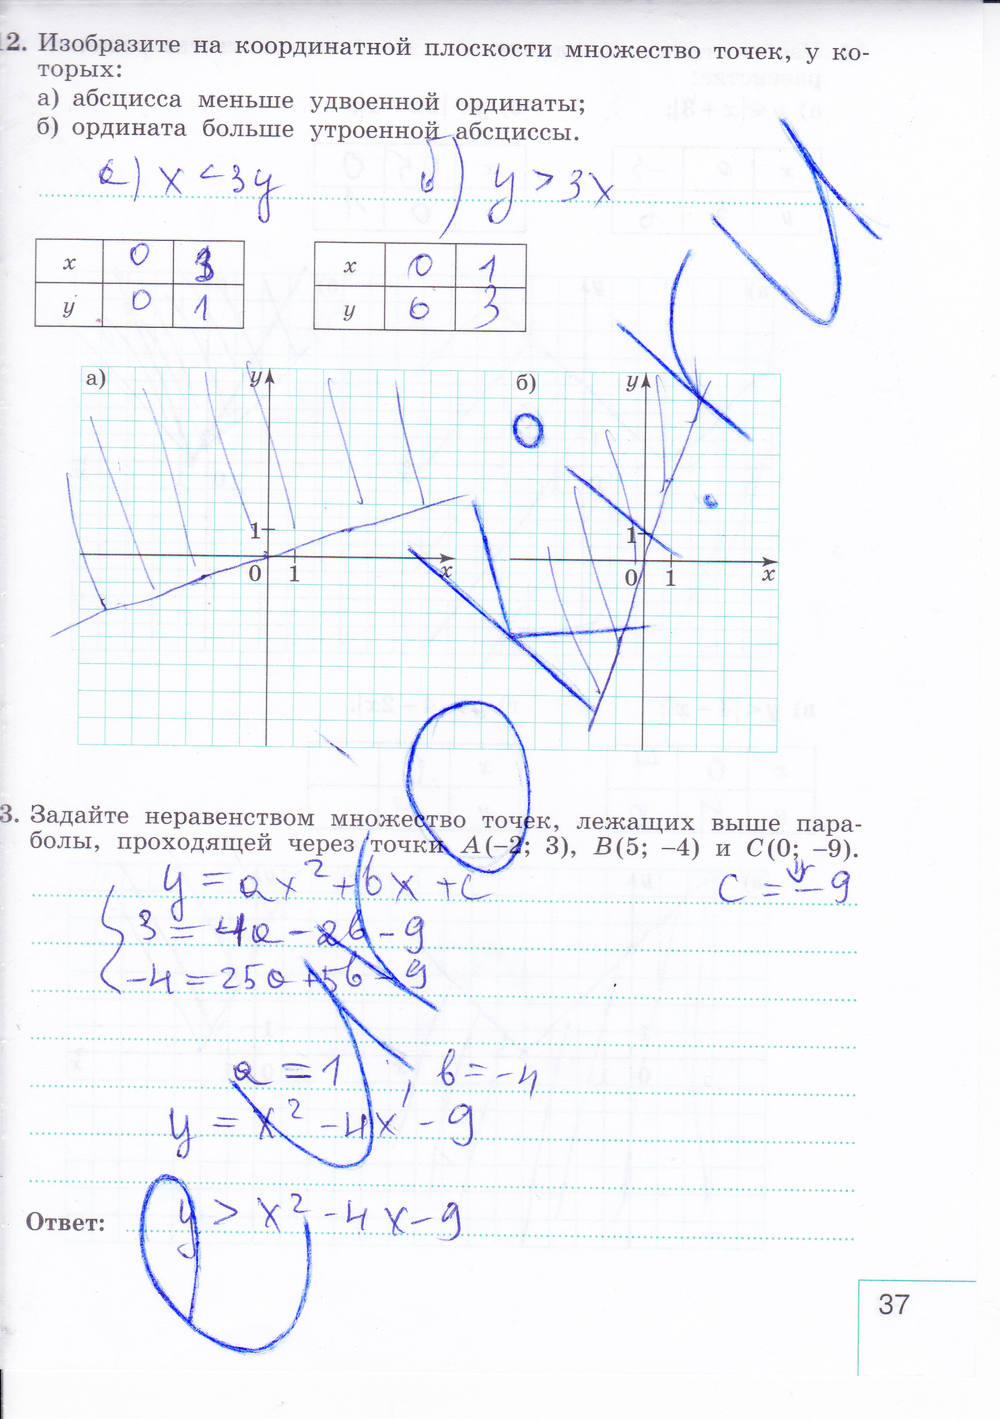 12. Изобразите на координатной плоскости множество точек, у ко-
торых:
а) абсцисса меньше удвоенной ординаты;
б) ордината больше утроенной абсциссы.
а) x < 3y б) y > 3x
x 0 3 x 0 1
y 0 1 y 0 3
а) y б) y
1 1
0 1 x 0 1 x
3. Задайте неравенством множество точек, лежащих выше пара-
болы, проходящей через точки A(–2; 3), B(5; –4) и C(0; –9).
y = ax² + bx + c c = –9
3 = 4a – 2b – 9
–4 = 25a + 5b – 9
a = 1, b = –4
y = x² – 4x – 9
Ответ: y > x² – 4x – 9
37